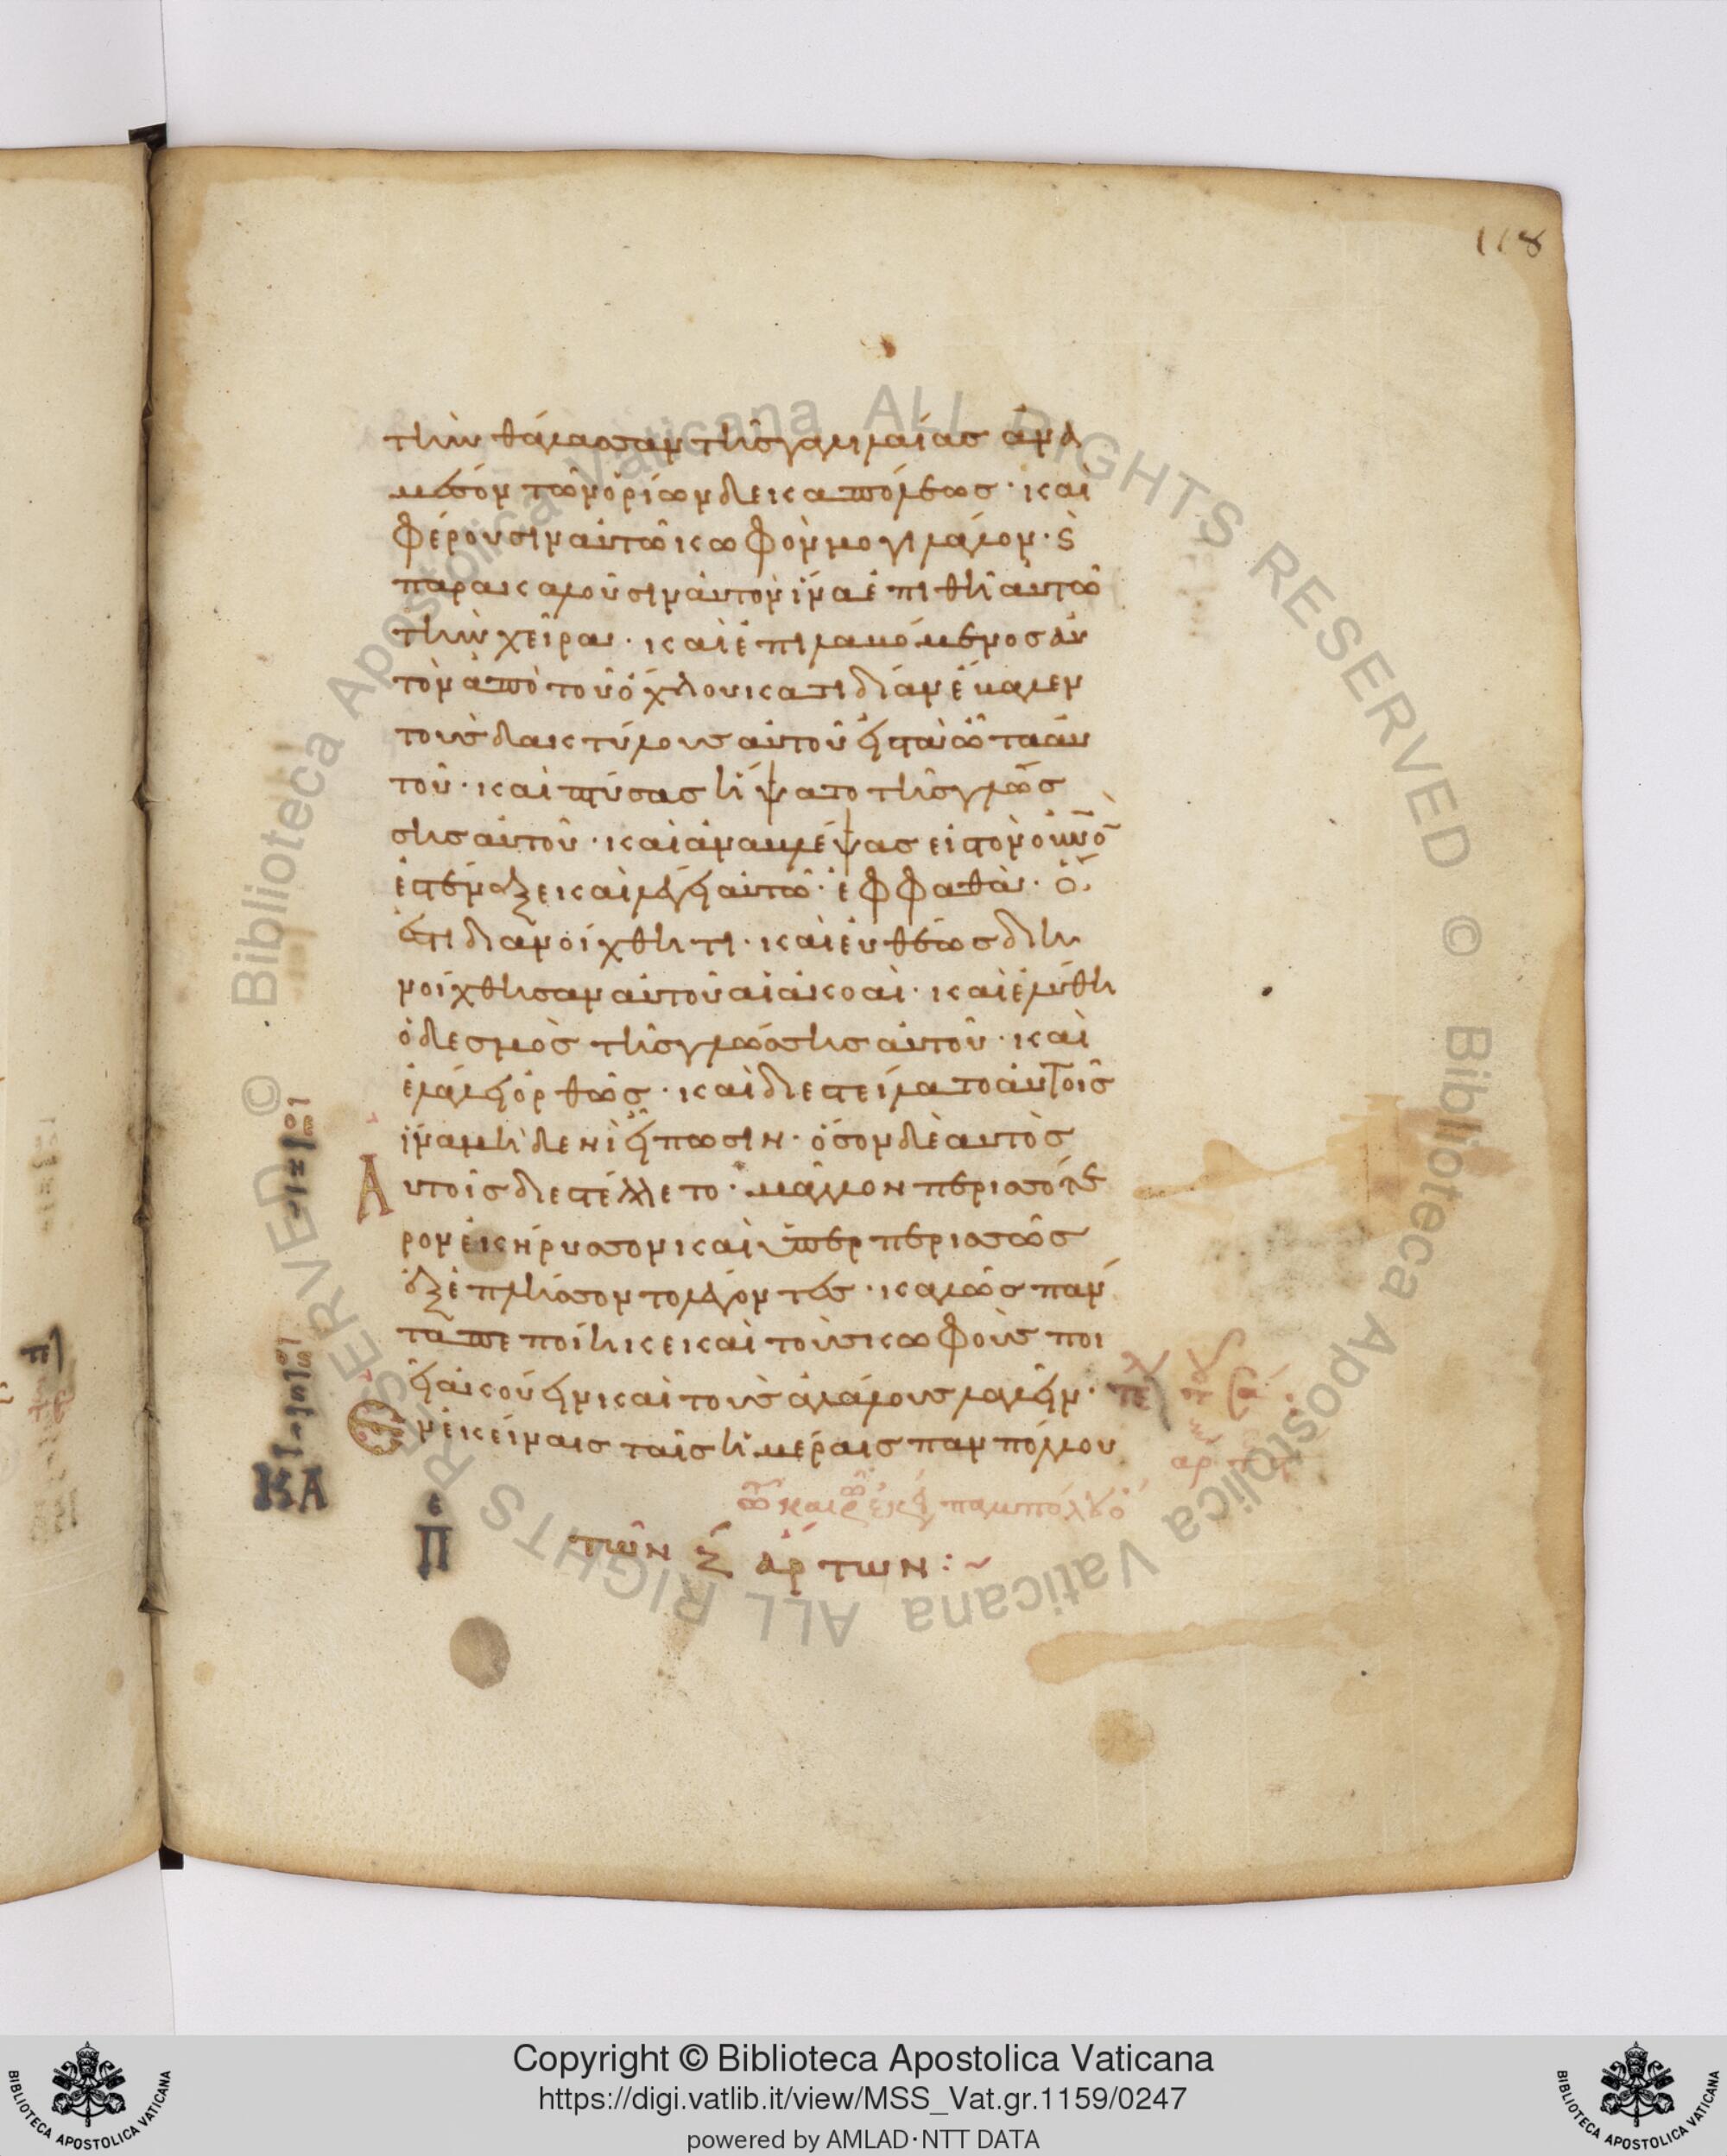 118
τὴν θάλασσαν τῆς γαλιλαίας ἀνὰ
μέσον τῶν ὁρίων δεκαπόλεως· καὶ
φέρουσιν αὐτῶ κωφὸν μογιλάλον· ϗ
παρακαλοῦσιν αὐτὸν ἵνα ἐπιθῆ αὐτῶ
τὴν χεῖρα· καὶ ἐπιλαβόμενος αὐ
τὸν ἀπὸ τοῦ ὄχλου κατιδίαν ἔβαλεν
τοὺς δακτύλους αὐτοῦ εἰς τὰ ὦτα αὐ
τοῦ· καὶ πτύσας ἥψατο τῆς γλώσ
σης αὐτοῦ· καὶ ἀναβλέψας εἰς τὸν οὐνὸ
ἐστέναξε καὶ λέγει αὐτῶ· ἐφφαθὰ· ὅ
ἐστι διανοίχθητι· καὶ εὐθέως διη
νοίχθησαν αὐτοῦ αἱ ἀκοαὶ· καὶ ἐλύθη
ὁ δεσμὸς τῆς γλώσσης αὐτοῦ· καὶ
ἐλάλει ὀρθῶς· καὶ διεστείλατο αὐτοῖς
ἵνα μηδενὶ εἴπωσιν· ὅσον δὲ αὐτὸς
Αυτοῖς διεστέλλετο· μᾶλλον περισσότε
ρον ἐκήρυσσον καὶ ὑπερπερισσῶς
ἐξεπλήσσοντο λέγοντες· καλῶς πάν
τα πεποίηκε καὶ τοὺς κωφοὺς ποι
εῖ ἀκούειν καὶ τοὺς ἀλάλους λαλεῖν·
Ἐν ἐκείναις ταῖς ἡμέραις παμπόλλου
ΚΑ
Π
τῶν ζ ἄρτων:~
Copyright © Biblioteca Apostolica Vaticana
https://digi.vatlib.it/view/MSS_Vat.gr.1159/0247
powered by AMLAD·NTT DATA
BIBLIOTECA APOSTOLICA VATICANA
BIBLIOTECA APOSTOLICA VATICANA
© Biblioteca Apostolica Vaticana ALL RIGHTS RESERVED
© Biblioteca Apostolica Vaticana ALL RIGHTS RESERVED